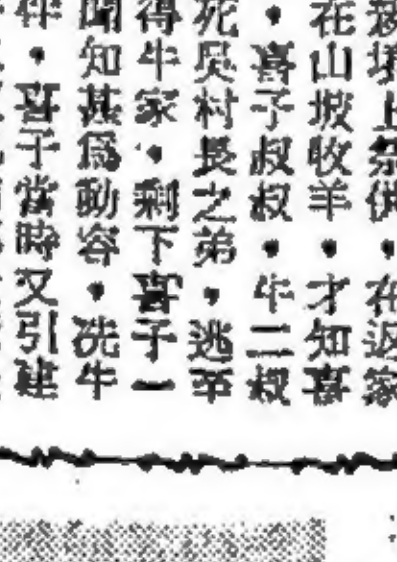 墳上祭供，在返家
在山坡收羊，才知喜
，喜子叔叔，牛二叔
死吳村長之弟，逃至
得牛家，剩下喜子一
聞知甚爲動容，冼牛
件，喜子當時又引建